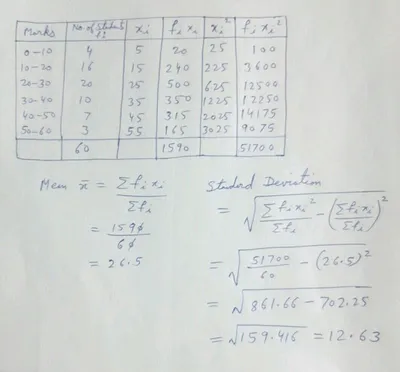 Marks No of Students fi xi fi xi xi² fi xi²
0-10 4 5 20 25 100
10-20 16 15 240 225 3600
20-30 20 25 500 625 12500
30-40 10 35 350 1225 12250
40-50 7 45 315 2025 14175
50-60 3 55 165 3025 9075
60 1590 51700
Mean x̄ = Σfixi / Σfi
= 1590 / 60
= 26.5
Standard Deviation
= √(Σfixi² / Σfi - (Σfixi / Σfi)²)
= √(51700 / 60 - (26.5)²)
= √(861.66 - 702.25)
= √159.416 = 12.63